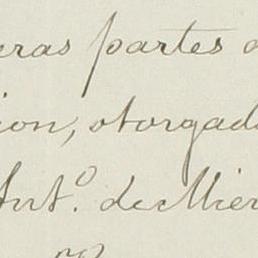 eras partes
ion, otorgad
Ant.º de Mier